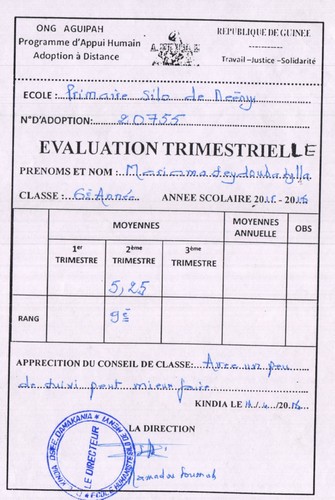 ONG AGUIPAH
REPUBLIQUE DE GUINEE
Programme d'Appui Humain
Adoption à Distance
Travail –Justice –Solidarité
ECOLE : Primaire Silo de
N°D'ADOPTION: 20755
EVALUATION TRIMESTRIELLE
PRENOMS ET NOM : Mariama
CLASSE : 6e Année ANNEE SCOLAIRE 2015 - 2016
MOYENNES
MOYENNES ANNUELLE
OBS
1er TRIMESTRE
2ème TRIMESTRE
3ème TRIMESTRE
5,25
RANG 9e
APPRECTION DU CONSEIL DE CLASSE: Avec un peu
de suivi peut mieux faire
KINDIA LE 14/4/2016
LA DIRECTION
LE DIRECTEUR
Mamadou Soumah